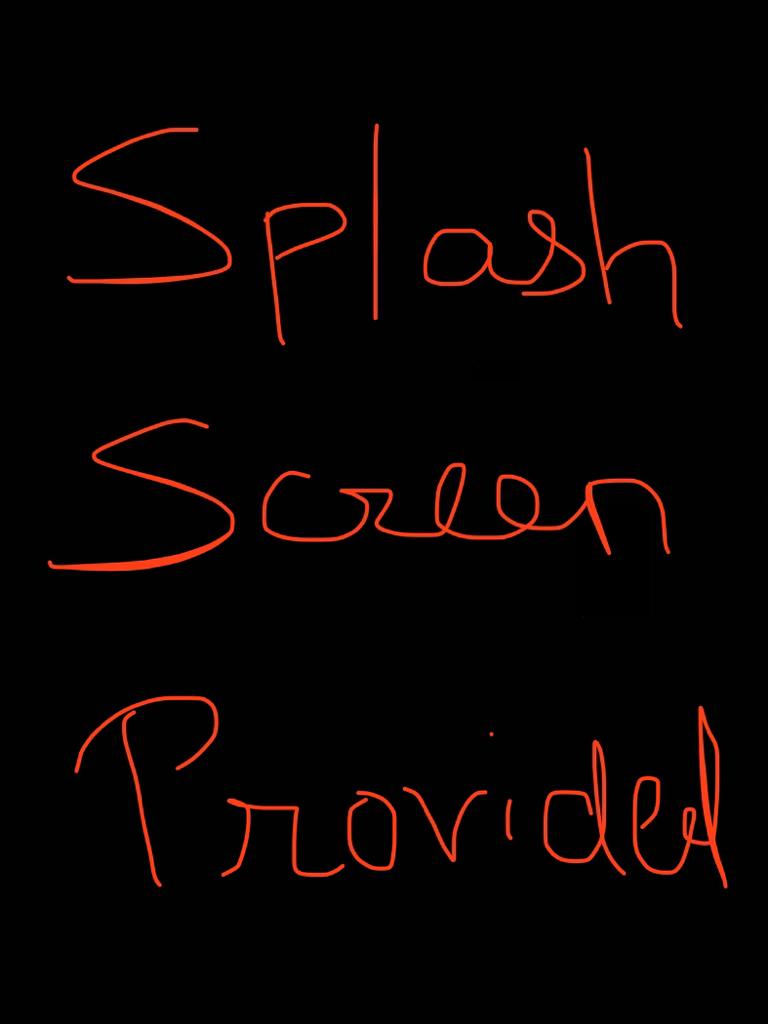 Splash
Screen
Provided